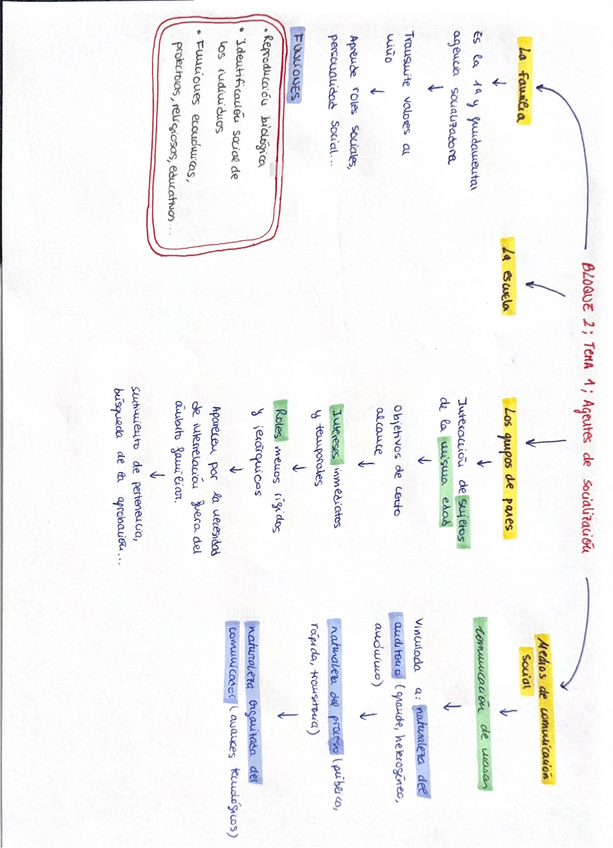 BLOQUE 2; TEMA 1; Agentes de socialización
La familia
Es la 1ª y fundamental
agencia socializadora
Transmite valores al
niño
Aprende roles sociales,
personalidad social...
FUNCIONES
• Reproducción biológica
• Identificación social de
los individuos
• Funciones económicas,
protectoras, religiosas, educativas...
La escuela
Los grupos de pares
Interacción de sujetos
de la misma edad
Objetivos de corto
alcance
Intereses inmediatos
y temporales
Roles menos rígidos
y jerárquicos
Aparecen por la necesidad
de interrelación fuera del
ámbito familiar.
sentimiento de pertenencia,
búsqueda de la aprobación...
Medios de comunicación
social
comunicación de masas
Vinculada a: naturaleza del
auditorio (grande, heterogénea,
anónimo)
naturaleza del proceso (pública,
rápida, transitoria)
naturaleza organizada del
comunicador (avances tecnológicos)